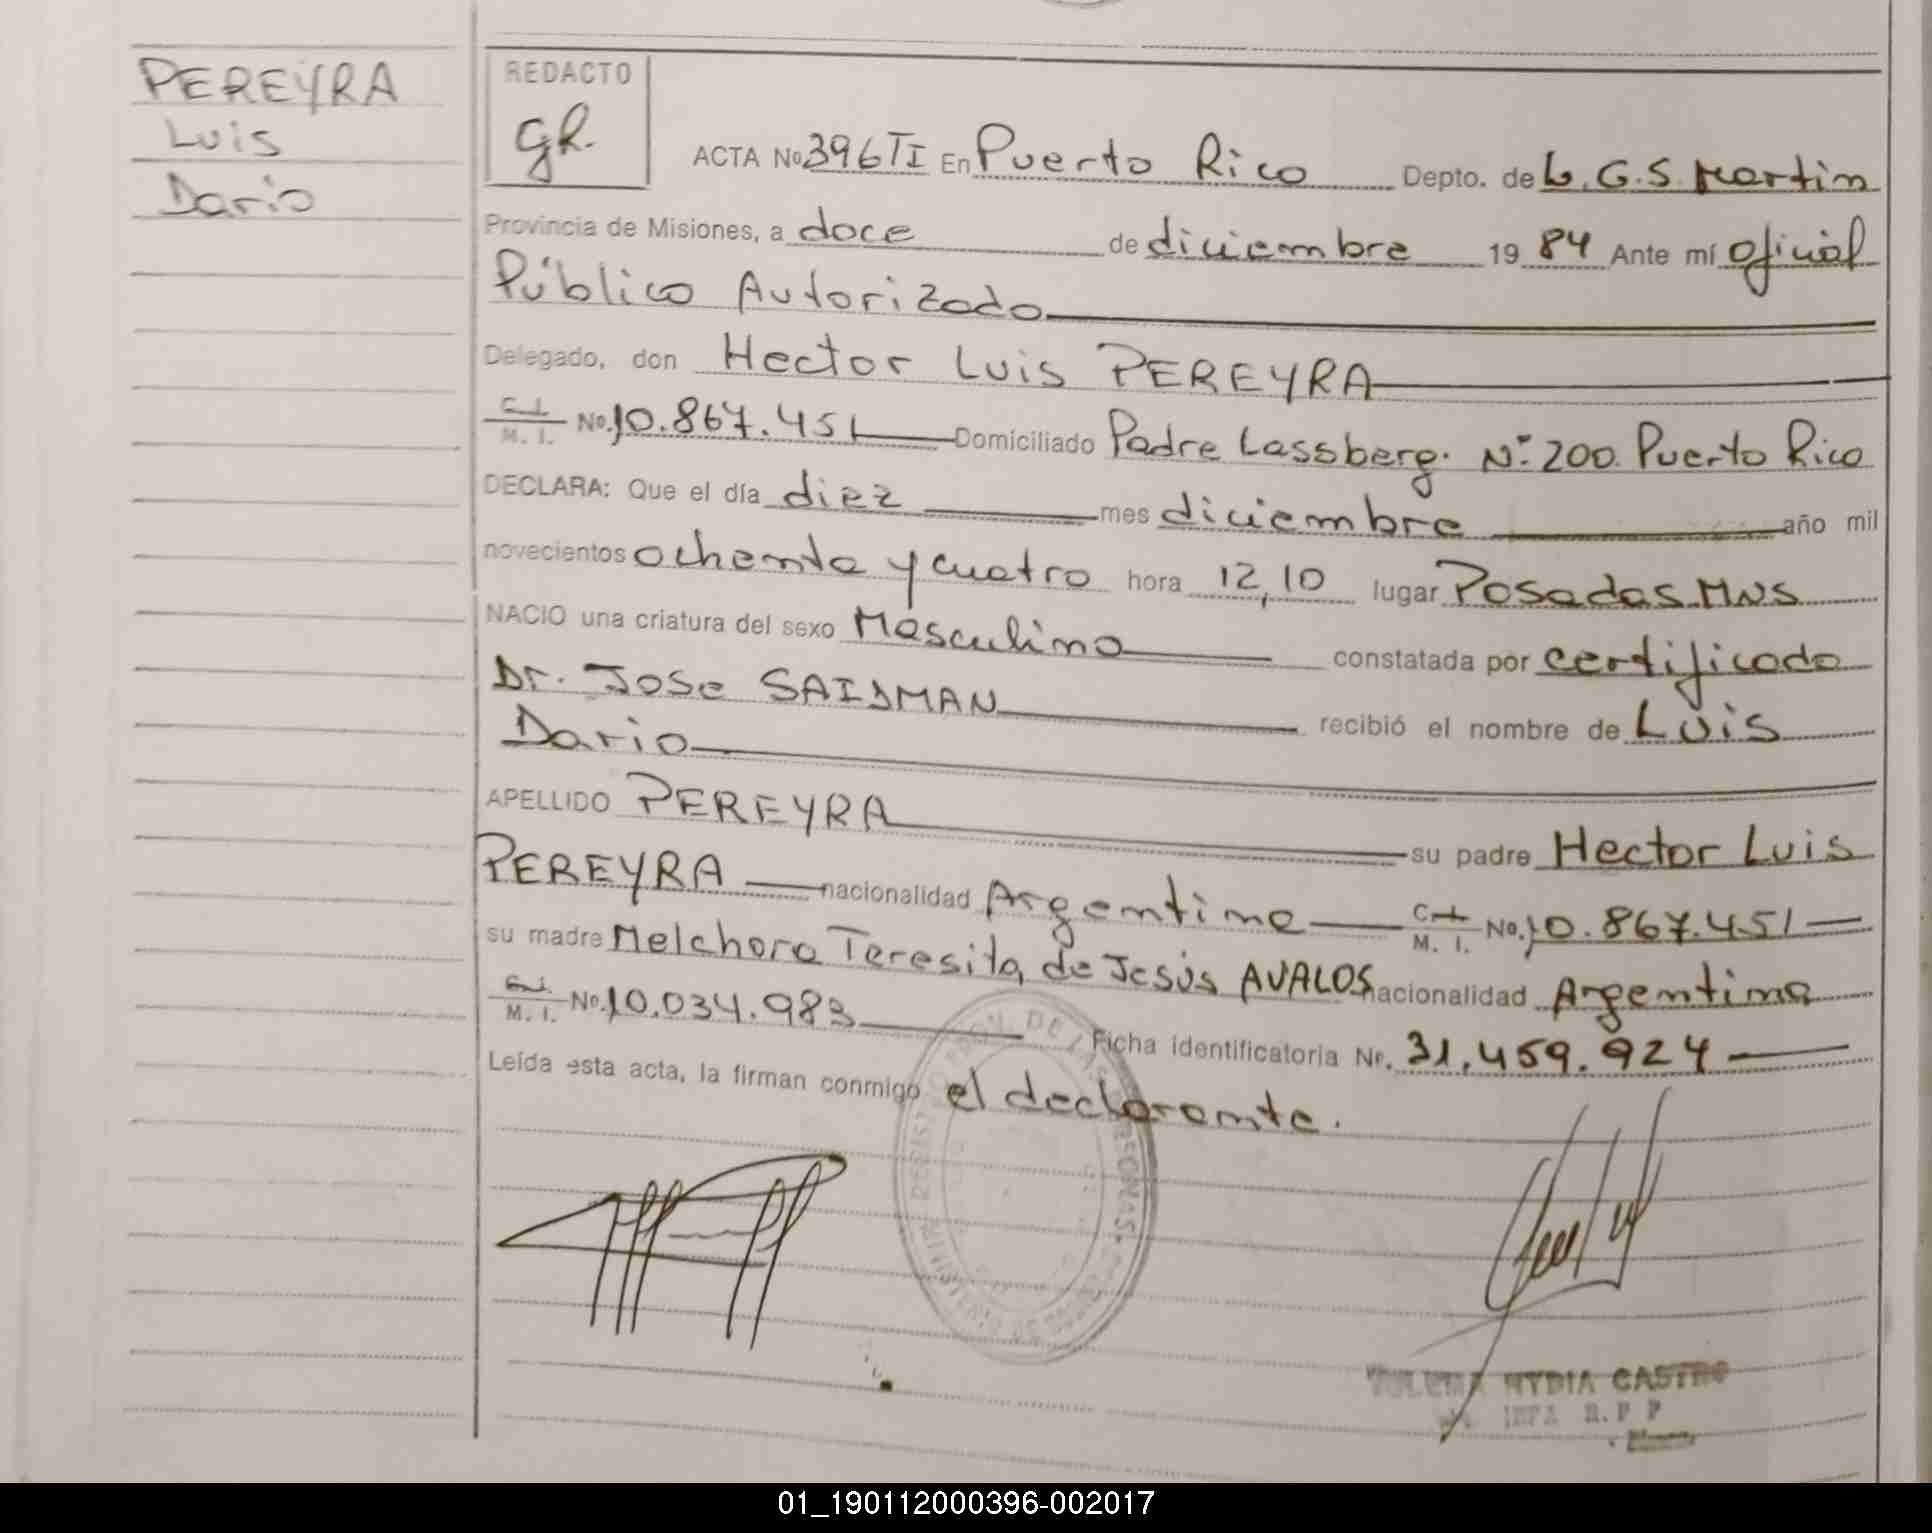 PEREYRA
Luis
Dario
REDACTO
gR.
ACTA No 396 TI En Puerto Rico Depto. de L. G. S. Martin
Provincia de Misiones, a doce de diciembre 19 84 Ante mí Oficial
Público Autorizado
Delegado, don Hector Luis PEREYRA
C. I. / M. I. No. 10.867.451 Domiciliado Padre Lassberg. Nº 200. Puerto Rico
DECLARA: Que el día diez mes diciembre año mil
novecientos ochenta y cuatro hora 12,10 lugar Posadas.MNS
NACIO una criatura del sexo Masculino constatada por certificado
Dr. Jose SAIDMAN recibió el nombre de Luis
Dario
APELLIDO PEREYRA su padre Hector Luis
PEREYRA nacionalidad Argentina C. I. / M. I. No. 10.867.451
su madre Melchora Teresita de Jesús AVALOS nacionalidad Argentina
C. I. / M. I. No. 10.034.983 Ficha identificatoria Nº. 31.459.924
Leída esta acta, la firman conmigo el declarante.
NYDIA CASTRO
01_190112000396-002017